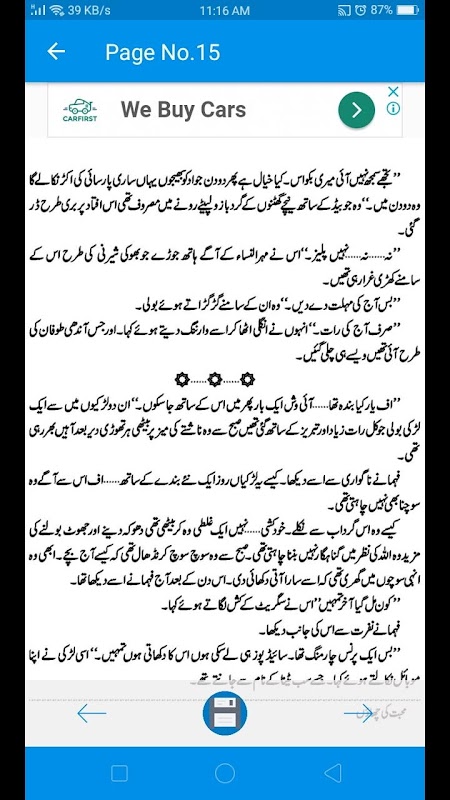 39 KB/s 11:16 AM 87%
Page No.15
CARFIRST We Buy Cars
’’تجھے سمجھ نہیں آئی میری بکواس۔ کیا خیال ہے پھر دو دن جواد کو بھیجوں یہاں ساری پارسائی کی اکڑ نکالے گا
وہ دو دن میں۔‘‘ وہ جو بیڈ کے ساتھ نیچے گھٹنوں کے گرد بازو لپیٹے رونے میں مصروف تھی اس افتاد پر بری طرح ڈر
گئی۔
’’نہ……نہ……نہیں پلیز۔‘‘ اس نے مہرالنساء کے آگے ہاتھ جوڑے جو بھوکی شیرنی کی طرح اس کے
سامنے کھڑی غرا رہی تھیں۔
’’بس آج کی مہلت دے دیں۔‘‘ وہ ان کے سامنے گڑگڑاتے ہوئے بولی۔
’’صرف آج کی رات۔‘‘ انہوں نے انگلی اٹھا کر اسے وارننگ دیتے ہوئے کہا۔ اور جس آندھی طوفان کی
طرح آئی تھیں ویسے ہی چلی گئیں۔
۞……۞……۞
’’اف یار کیا بندہ تھا……آئی وش ایک بار پھر میں اس کے ساتھ جا سکوں۔‘‘ ان دو لڑکیوں میں سے ایک
لڑکی بولی جو کل رات زیاد اور تبریز کے ساتھ گئی تھیں صبح سے وہ ناشتے کی میز پر بیٹھی ہر تھوڑی دیر بعد آہیں بھر رہی
تھی۔
فہمانے ناگواری سے اسے دیکھا۔ کیسے یہ لڑکیاں روز ایک نئے بندے کے ساتھ……اف اس سے آگے وہ
سوچنا بھی نہیں چاہتی تھی۔
کیسے وہ اس گرداب سے نکلے۔ خودکشی……نہیں ایک غلطی وہ کر بیٹھی تھی دھوکہ دینے اور جھوٹ بولنے کی
مزید وہ اللہ کی نظر میں گناہگار نہیں بننا چاہتی تھی۔ صبح سے وہ سوچ سوچ کر نڈھال تھی کہ کیسے آج بچے۔ ابھی وہ
انہی سوچوں میں گھری تھی کہ اسے سارا آتی دکھائی دی۔ اس دن کے بعد آج فہمانے اسے دیکھا تھا۔
’’کون مل گیا آخر تمہیں‘‘ اس نے سگریٹ کے کش لگاتے ہوئے کہا۔
فہمانے نفرت سے اس کی جانب دیکھا۔
’’بس ایک پرنس چارمنگ تھا۔ سائیڈ پوز ہی لے سکی ہوں اس کا دکھاتی ہوں تمہیں۔‘‘ اسی لڑکی نے اپنا
موبائل نکالتے ہوئے کہا۔ جسے سب ٹینا کے نام سے جانتے تھے۔
محبت کی چھاؤں